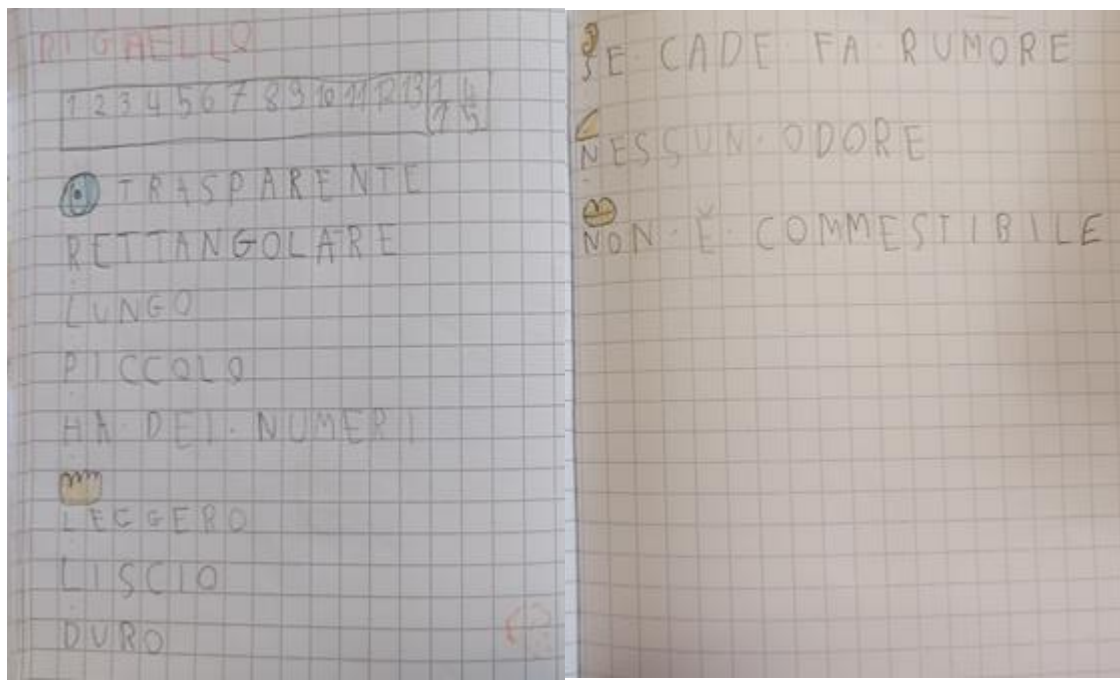 RIGHELLO
1 2 3 4 5 6 7 8 9 10 11 12 13 1 1
4 5
TRASPARENTE
RETTANGOLARE
LUNGO
PICCOLO
HA·DEI·NUMERI
LEGGERO
LISCIO
DURO
SE·CADE·FA·RUMORE
NESSUN·ODORE
NON·È·COMMESTIBILE